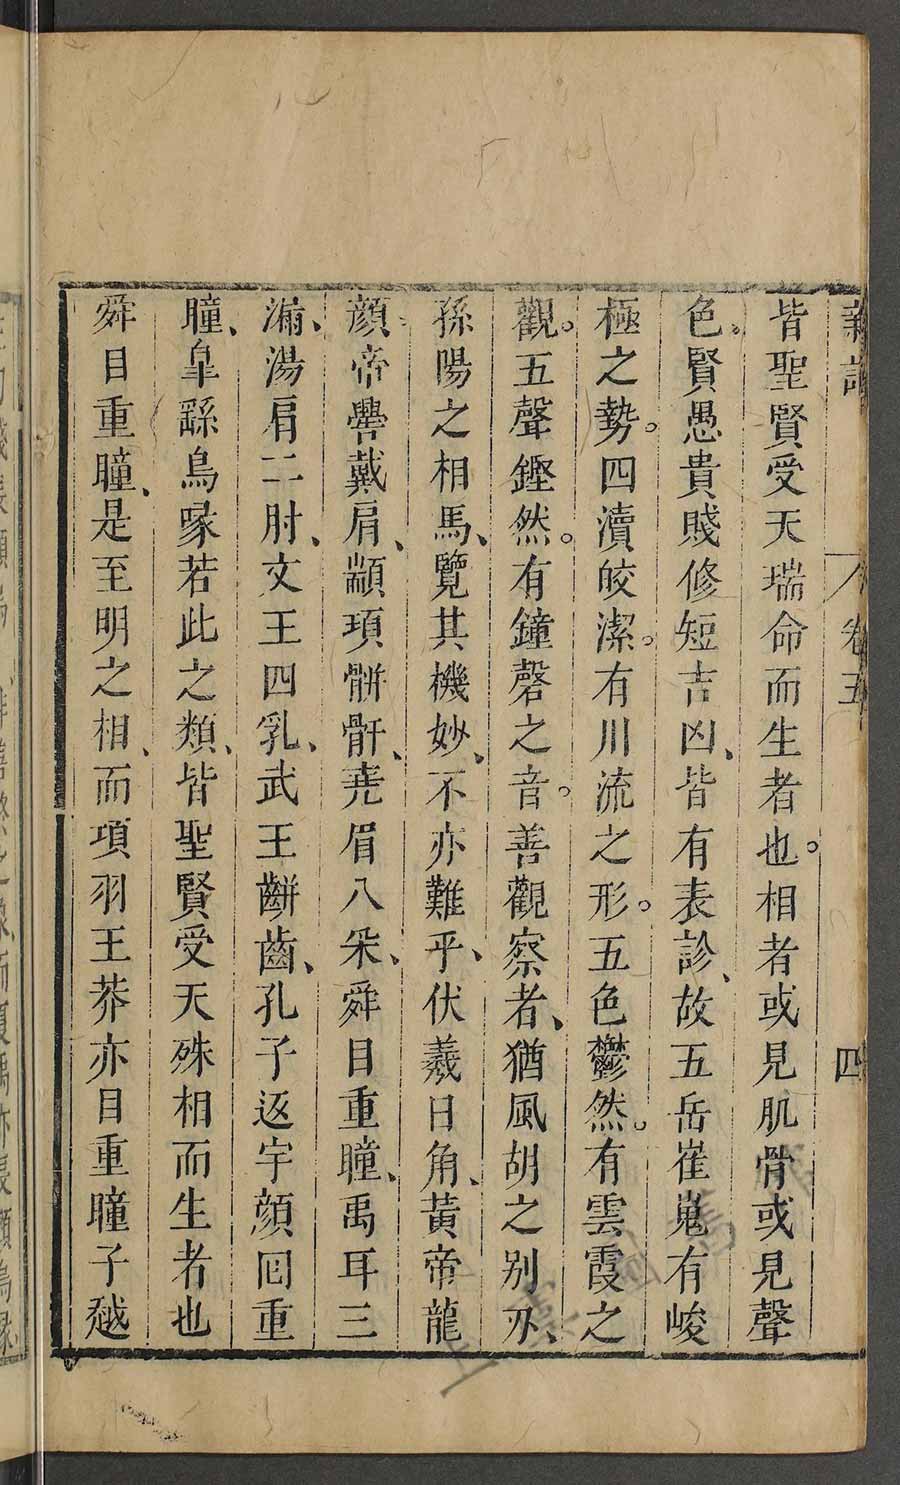 新論 卷五 四
皆聖賢受天瑞命而生者也。相者或見肌骨或見聲
色。賢愚貴賤修短吉凶、皆有表診、故五岳崔嵬有峻
極之勢。四瀆皎潔。有川流之形。五色鬱然。有雲霞之
觀。五聲鏗然。有鐘磬之音。善觀察者、猶風胡之別刃、
孫陽之相馬、覽其機妙、不亦難乎、伏羲日角、黃帝龍
顔、帝嚳戴肩、顓頊骿骭、堯眉八采、舜目重瞳、禹耳三
漏、湯肩二肘、文王四乳、武王齞齒、孔子返宇顔回重
瞳、皐繇鳥喙若此之類、皆聖賢受天殊相而生者也
舜目重瞳、是至明之相、而項羽王莽亦目重瞳子越